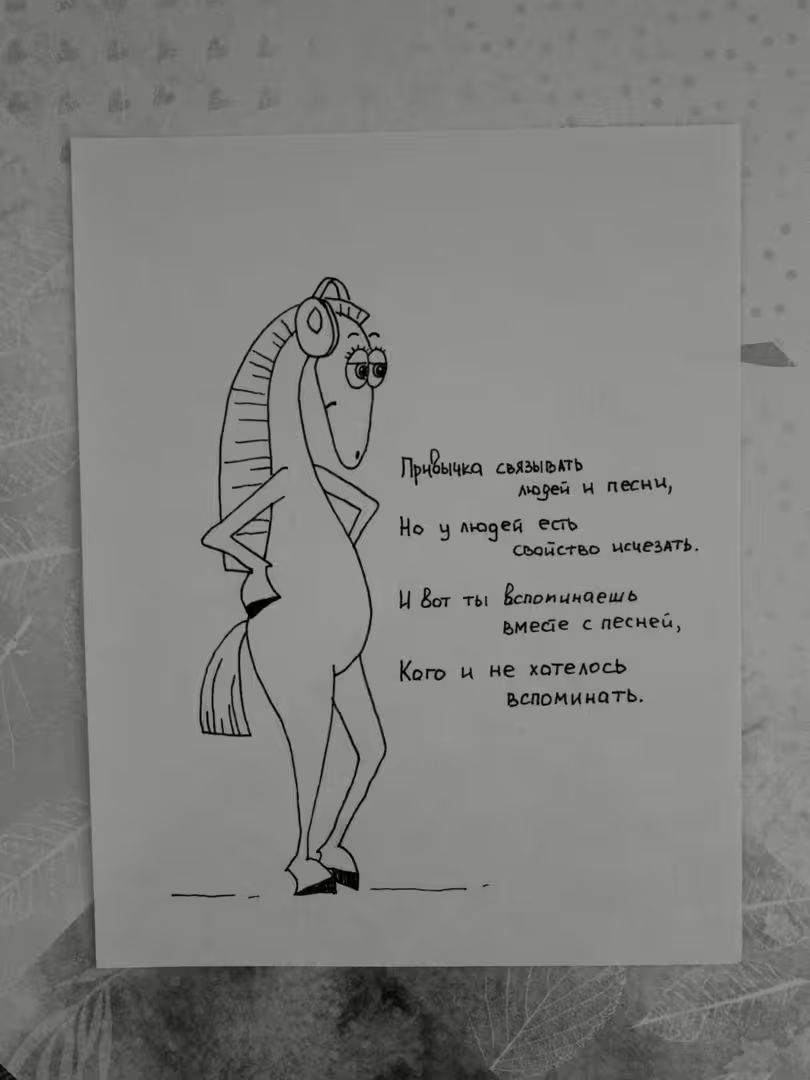 Привычка связывать
людей и песни,
Но у людей есть
свойство исчезать.
И вот ты вспоминаешь
вместе с песней,
Кого и не хотелось
вспоминать.